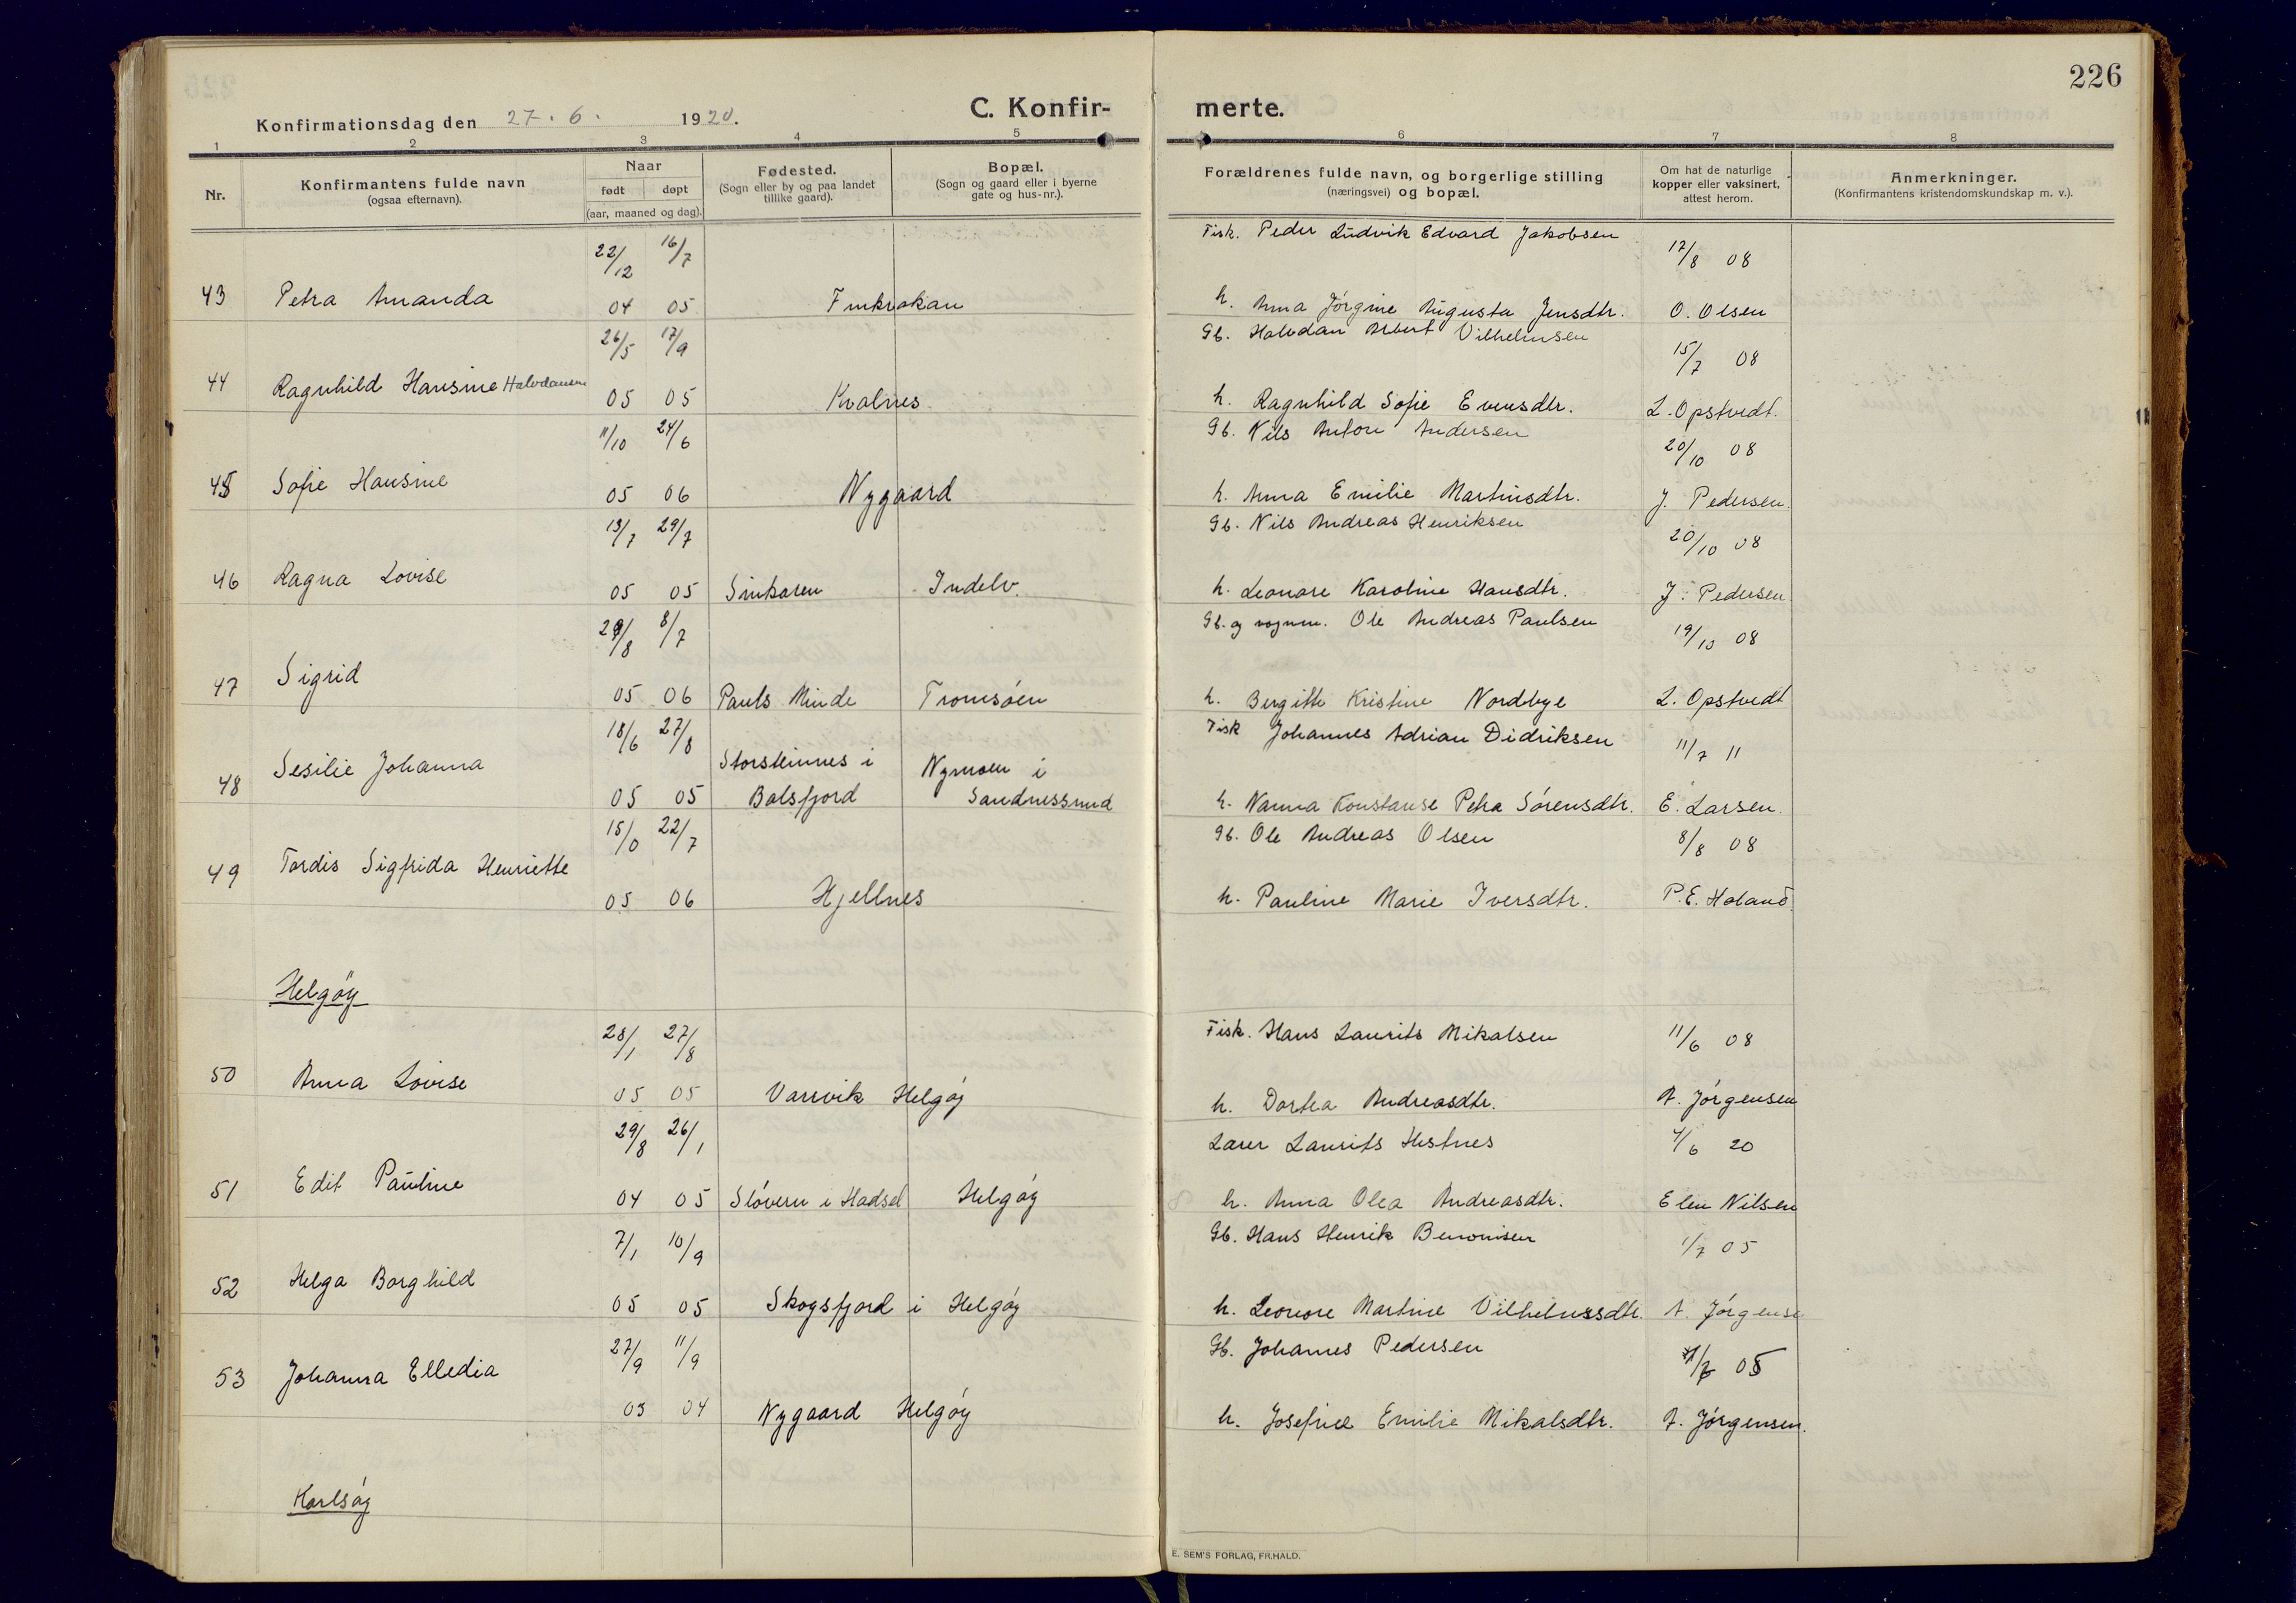 226
Konfirmationsdag den 27. 6. 1920.
C. Konfir-
merte.
1 2 3 4 5 6 7 8
Nr.
Konfirmantens fulde navn
(ogsaa efternavn).
Naar
født døpt
(aar, maaned og dag).
Fødested.
(Sogn eller by og paa landet
tillike gaard).
Bopæl.
(Sogn og gaard eller i byerne
gate og hus-nr.).
Forældrenes fulde navn, og borgerlige stilling
(næringsvei) og bopæl.
Om hat de naturlige
kopper eller vaksinert,
attest herom.
Anmerkninger.
(Konfirmantens kristendomskundskap m. v.).
22/12 16/7 Fisk. Peder Ludvik Edvard Jakobsen 17/8 08
43 Petra Amanda 04 05 Finkrokan h. Anna Jørgine Augusta Jensdtr. O. Olsen
26/5 17/9 Gb. Halvdan Albert Vilhelmsen 15/7 08
44 Ragnhild Hansine Halvdansen 05 05 Kvalnes h. Ragnhild Sofie Evensdtr. L. Opstvedt.
11/10 24/6 Gb. Nils Anton Andersen 20/10 08
45 Sofie Hansine 05 06 Nygaard h. Anna Emilie Martinsdtr. J. Pedersen.
13/7 29/7 Gb. Nils Andreas Henriksen 20/10 08
46 Ragna Lovise 05 05 Sinkaren Indelv. h. Leonare Karoline Hansdtr. J. Pedersen
8/7 Gb. og vognm. Ole Andreas Paulsen 19/10 08
47 Sigrid 05 06 Pauls Minde Tromsøen h. Bergitte Kristine Nordbye L. Opstvedt
18/6 27/8 Fisk Johannes Adrian Didriksen 11/7 11
48 Sesilie Johanna Storsteinnes i Nymoen i
05 05 Balsfjord Sandnessund h. Nanna Konstanse Petra Sørensdtr. E. Larsen.
15/10 22/7 Gb. Ole Andreas Olsen 8/8 08
49 Tordis Sigfrida Henriette 05 06 Hjellnes h. Pauline Marie Iversdtr. P.E. Holand.
Helgøy
28/1 27/8 Fisk. Hans Laurits Mikalsen 11/6 08
50 Anna Lovise 05 05 Vannvik Helgøy h. Dortea Andreasdtr. A. Jørgensen
29/8 26/1 Lærer Laurits Hestnes 4/6 20
51 Edit Pauline 04 05 Sløveren i Hadsel Helgøy h. Anna Olea Andreasdtr. Elen Nilsen
7/1 10/9 Gb. Hans Henrik Benonisen 1/7 05
52 Helga Borghild 05 05 Skogsfjord i Helgøy h. Leonore Martine Vilhelmssdtr. A. Jørgense
27/9 11/9 Gb. Johannes Pedersen 05
53 Johanna Elledia 03 04 Nygaard Helgøy h. Josefine Emilie Mikalsdtr. A. Jørgensen.
Karlsøy
E. SEM'S FORLAG, FR.HALD.